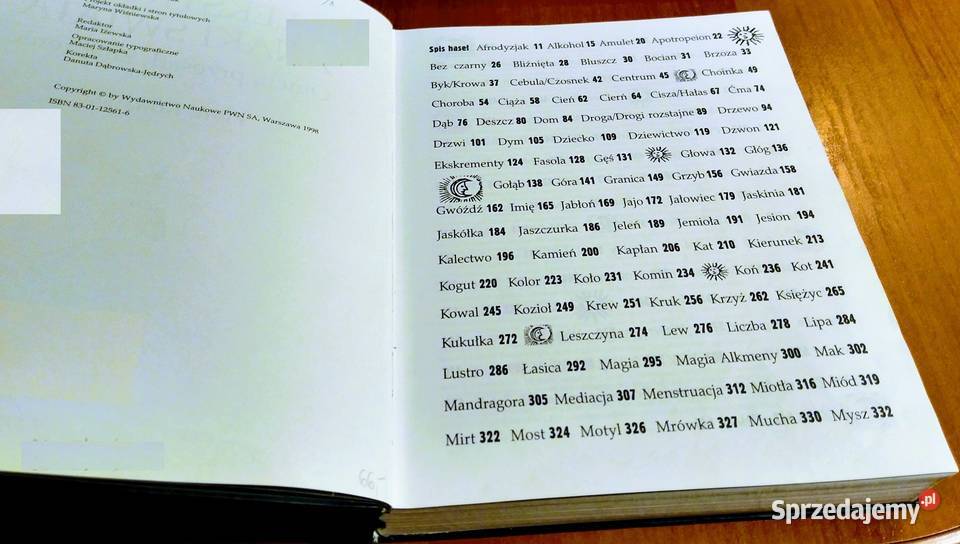 Projekt okładki i stron tytułowych
Maryna Wiśniewska
Redaktor
Maria Iżewska
Opracowanie typograficzne
Maciej Szłapka
Korekta
Danuta Dąbrowska-Jędrych
Copyright © by Wydawnictwo Naukowe PWN SA, Warszawa 1998
ISBN 83-01-12561-6
66-
Spis haseł Afrodyzjak 11 Alkohol 15 Amulet 20 Apotropeion 22
Bez czarny 26 Bliźnięta 28 Bluszcz 30 Bocian 31 Brzoza 33
Byk/Krowa 37 Cebula/Czosnek 42 Centrum 45 Choinka 49
Choroba 54 Ciąża 58 Cień 62 Cierń 64 Cisza/Hałas 67 Ćma 74
Dąb 76 Deszcz 80 Dom 84 Droga/Drogi rozstajne 89 Drzewo 94
Drzwi 101 Dym 105 Dziecko 109 Dziewictwo 119 Dzwon 121
Ekskrementy 124 Fasola 128 Gęś 131 Głowa 132 Głóg 136
Gołąb 138 Góra 141 Granica 149 Grzyb 156 Gwiazda 158
Gwóźdź 162 Imię 165 Jabłoń 169 Jajo 172 Jałowiec 179 Jaskinia 181
Jaskółka 184 Jaszczurka 186 Jeleń 189 Jemioła 191 Jesion 194
Kalectwo 196 Kamień 200 Kapłan 206 Kat 210 Kierunek 213
Kogut 220 Kolor 223 Koło 231 Komin 234 Koń 236 Kot 241
Kowal 245 Kozioł 249 Krew 251 Kruk 256 Krzyż 262 Księżyc 265
Kukułka 272 Leszczyna 274 Lew 276 Liczba 278 Lipa 284
Lustro 286 Łasica 292 Magia 295 Magia Alkmeny 300 Mak 302
Mandragora 305 Mediacja 307 Menstruacja 312 Miotła 316 Miód 319
Mirt 322 Most 324 Motyl 326 Mrówka 327 Mucha 330 Mysz 332
Sprzedajemy.pl